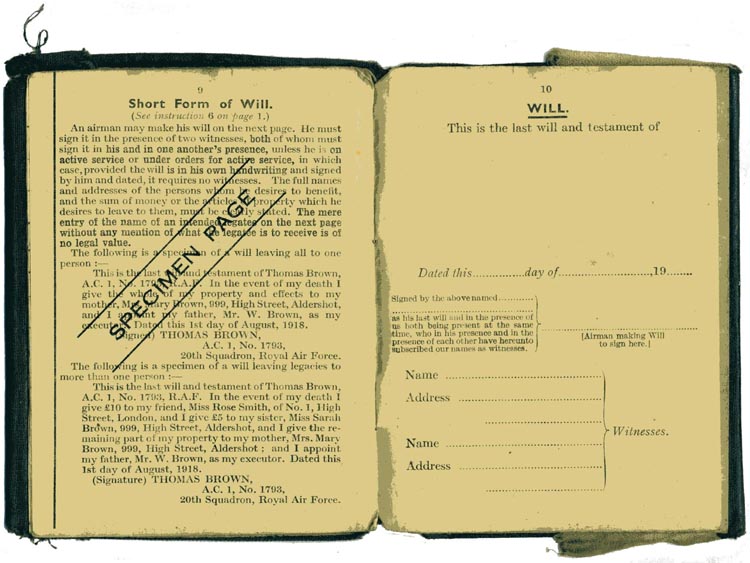 9
Short Form of Will.
(See instruction 6 on page 1.)
An airman may make his will on the next page. He must
sign it in the presence of two witnesses, both of whom must
sign it in his and in one another's presence, unless he is on
active service or under orders for active service, in which
case, provided the will is in his own handwriting and signed
by him and dated, it requires no witnesses. The full names
and addresses of the persons whom he desires to benefit,
and the sum of money or the articles of property which he
desires to leave to them, must be clearly stated. The mere
entry of the name of an intended legatee on the next page
without any mention of what the legatee is to receive is of
no legal value.
The following is a specimen of a will leaving all to one
person :—
This is the last will and testament of Thomas Brown,
A.C. 1, No. 1793, R.A.F. In the event of my death I
give the whole of my property and effects to my
mother, Mrs. Mary Brown, 999, High Street, Aldershot,
and I appoint my father, Mr. W. Brown, as my
executor. Dated this 1st day of August, 1918.
(Signed) THOMAS BROWN,
A.C. 1, No. 1793,
20th Squadron, Royal Air Force.
The following is a specimen of a will leaving legacies to
more than one person :—
This is the last will and testament of Thomas Brown,
A.C. 1, No. 1793, R.A.F. In the event of my death I
give £10 to my friend, Miss Rose Smith, of No. 1, High
Street, London, and I give £5 to my sister, Miss Sarah
Brown, 999, High Street, Aldershot, and I give the re-
maining part of my property to my mother, Mrs. Mary
Brown, 999, High Street, Aldershot ; and I appoint
my father, Mr. W. Brown, as my executor. Dated this
1st day of August, 1918.
(Signature) THOMAS BROWN,
A.C. 1, No. 1793,
20th Squadron, Royal Air Force.
SPECIMEN PAGE
10
WILL.
This is the last will and testament of
Dated this...............day of........................., 19.........
Signed by the above named............
as his last will and in the presence of
us both being present at the same
time, who in his presence and in the
presence of each other have hereunto
subscribed our names as witnesses.
[Airman making Will
to sign here.]
Name
Address
Name
Address
Witnesses.